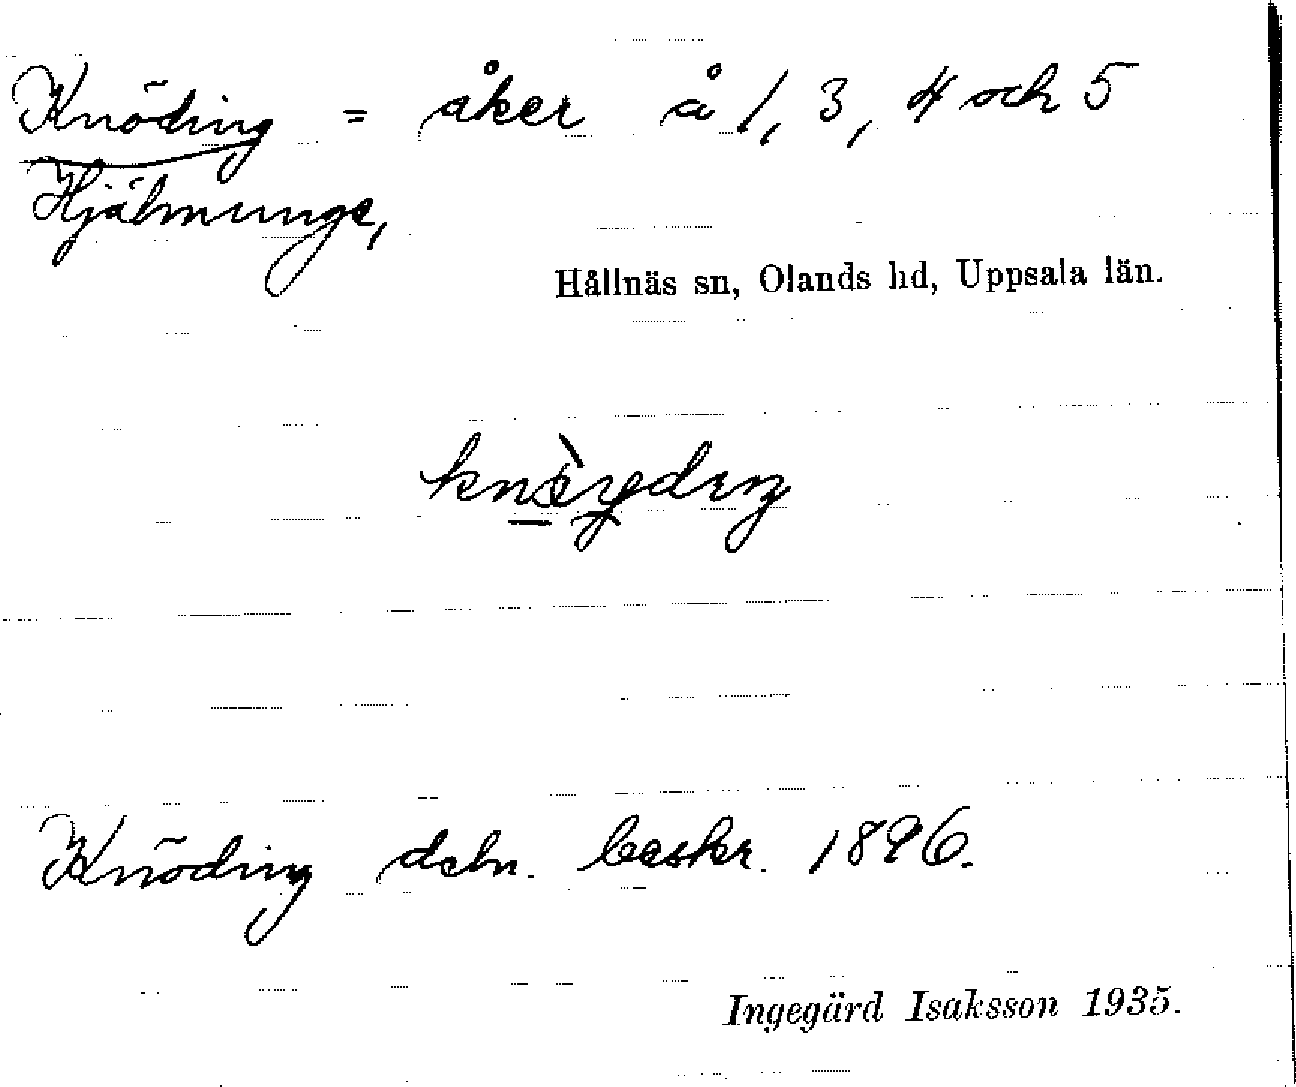 Knöding = åker å 1, 3, 4 och 5
Hjälmunge,
Hållnäs sn, Olands hd, Uppsala län.
Knöding deln. beskr. 1896.
Ingegärd Isaksson 1935.